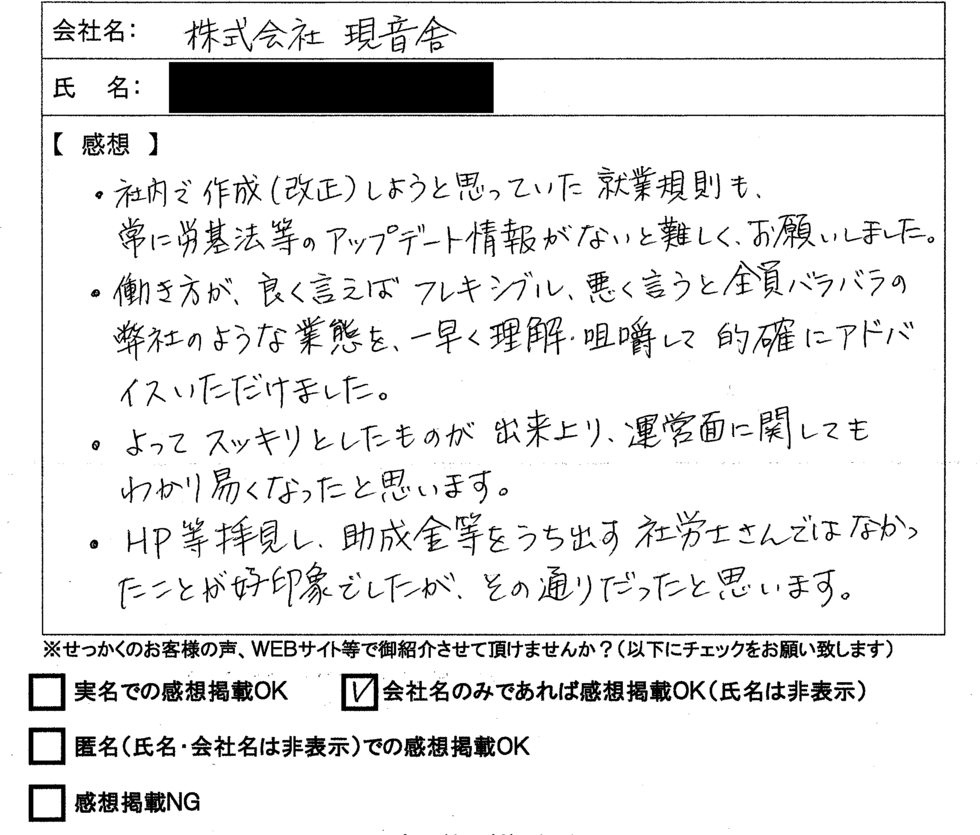 会社名： 株式会社 現音舎
氏　名：
【 感想 】
・社内で作成(改正)しようと思っていた 就業規則も、
常に労基法等のアップデート情報がないと難しく、お願いしました。
・働き方が、良く言えば フレキシブル、悪く言うと全員バラバラの
弊社のような業態を、一早く理解・咀嚼して 的確にアドバ
イスいただけました。
・よって スッキリとしたものが 出来上り、運営面に関しても
わかり易くなったと思います。
・HP等拝見し、助成金等をうち出す 社労士さんではなかっ
たことが好印象でしたが、その通りだったと思います。
※せっかくのお客様の声、WEBサイト等で御紹介させて頂けませんか？（以下にチェックをお願い致します）
実名での感想掲載OK ☑会社名のみであれば感想掲載OK（氏名は非表示）
匿名（氏名・会社名は非表示）での感想掲載OK
感想掲載NG